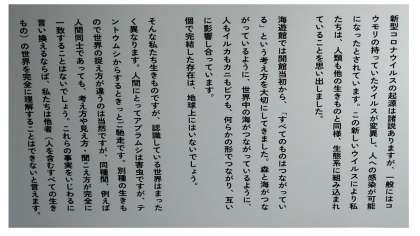 新型コロナウイルスの起源は諸説ありますが、一般にはコ
ウモリの持っていたウイルスが変異し、人への感染が可能
になったとされています。この新しいウイルスにより私
たちは、人類も他の生きものと同様、生態系に組み込まれ
ていることを思い出しました。
海遊館では開館当初から、「すべてのものはつながってい
る」という考え方を大切にしてきました。森と海がつな
がっているように、世界中の海がつながっているように、
人もイルカもカニもビワも、何らかの形でつながり、互い
に影響し合っています。
個で完結した存在は、地球上にはいないでしょう。
そんな私たち生きものですが、認識している世界はまった
く異なります。人間にとってアブラムシは害虫ですが、テ
ントウムシからするときっとご馳走です。別種の生きも
ので世界の捉え方が違うのは当然ですが、同種間、例えば
人間同士であっても、考え方や見え方・聞こえ方が完全に
一致することはないでしょう。これらの事実をいじわるに
言い換えるならば、私たちは他者（人を含むすべての生き
もの）の世界を完全に理解することはできないと言えます。